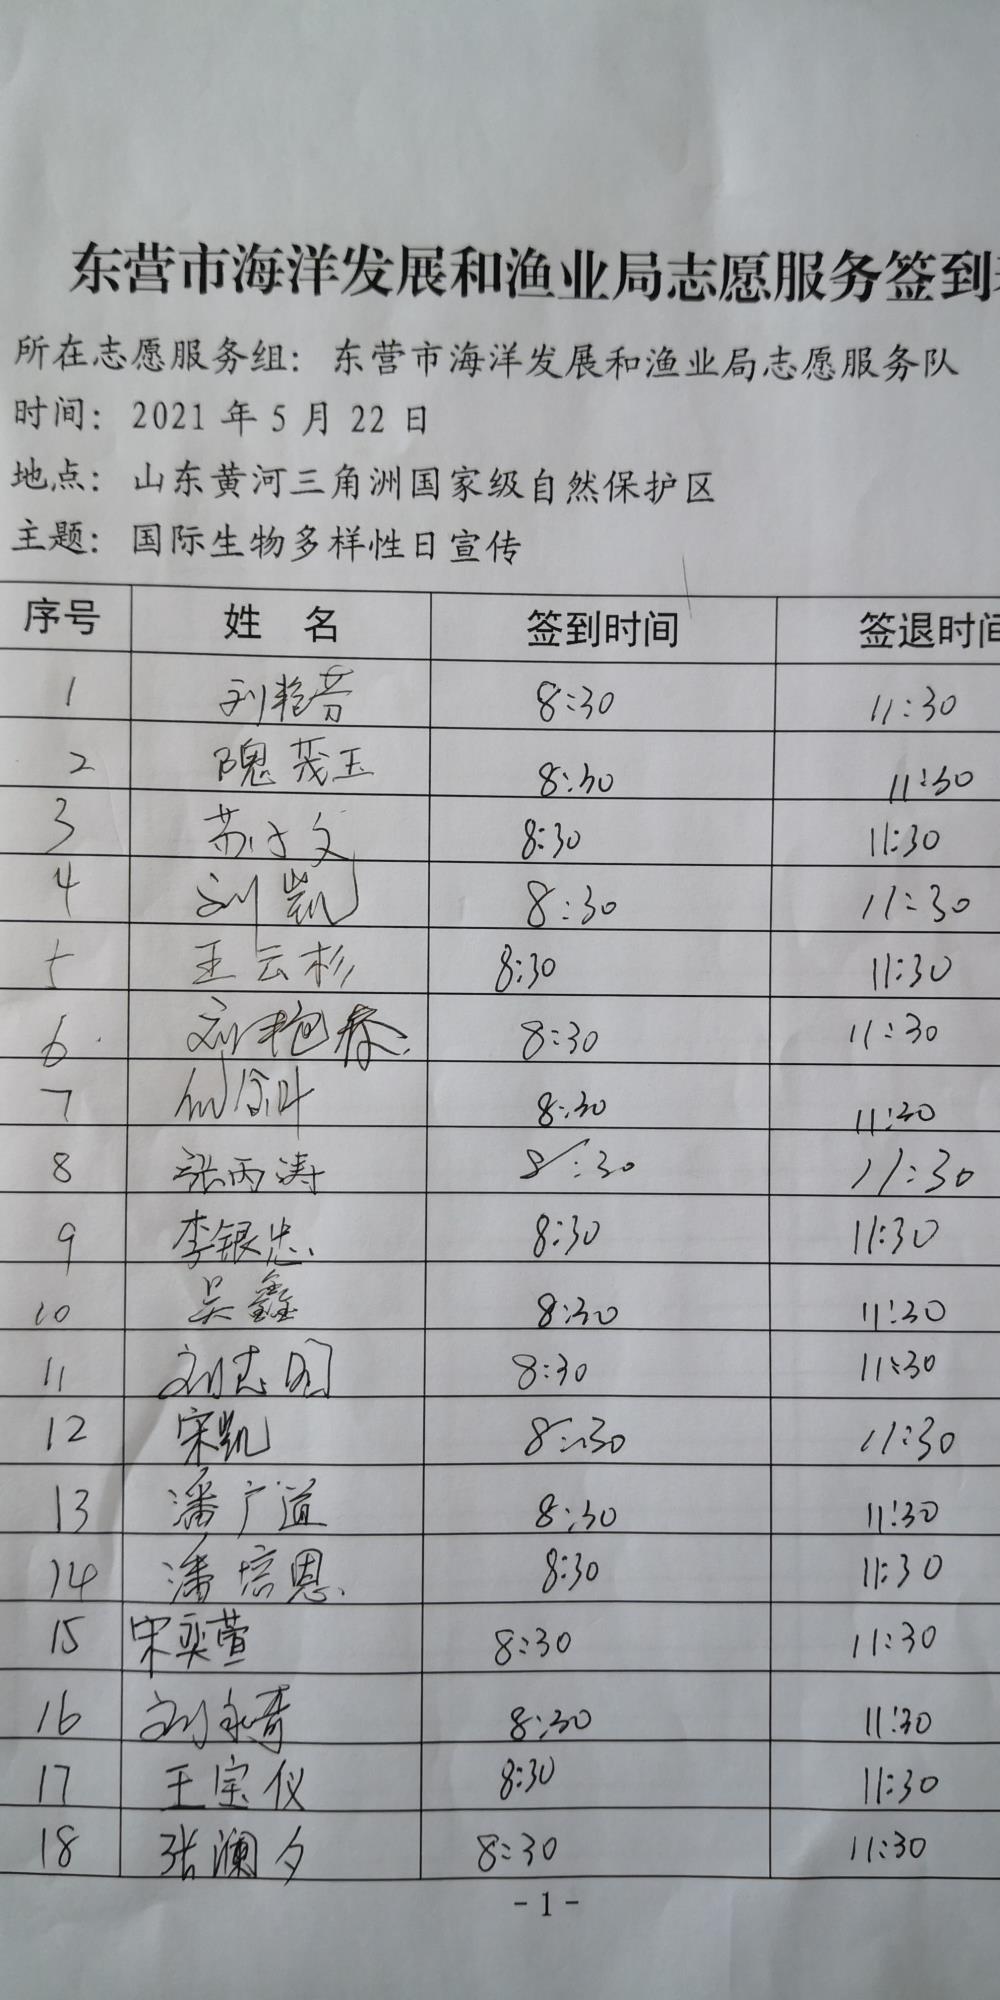 东营市海洋发展和渔业局志愿服务签到
所在志愿服务组：东营市海洋发展和渔业局志愿服务队
时间：2021 年 5 月 22 日
地点：山东黄河三角洲国家级自然保护区
主题：国际生物多样性日宣传
序号 姓 名 签到时间 签退时间
1 刘艳芬 8:30 11:30
2 隗茂玉 8:30 11:30
3 苏小文 8:30 11:30
4 刘凯 8:30 11:30
5 王云杉 8:30 11:30
6 刘艳春 8:30 11:30
7 8:30 11:30
8 张丙涛 8:30 11:30
9 李银忠 8:30 11:30
10 吴鑫 8:30 11:30
11 刘志国 8:30 11:30
12 宋凯 8:30 11:30
13 潘广道 8:30 11:30
14 潘培恩 8:30 11:30
15 宋奕萱 8:30 11:30
16 刘永奇 8:30 11:30
17 王宝仪 8:30 11:30
18 张澜夕 8:30 11:30
- 1 -